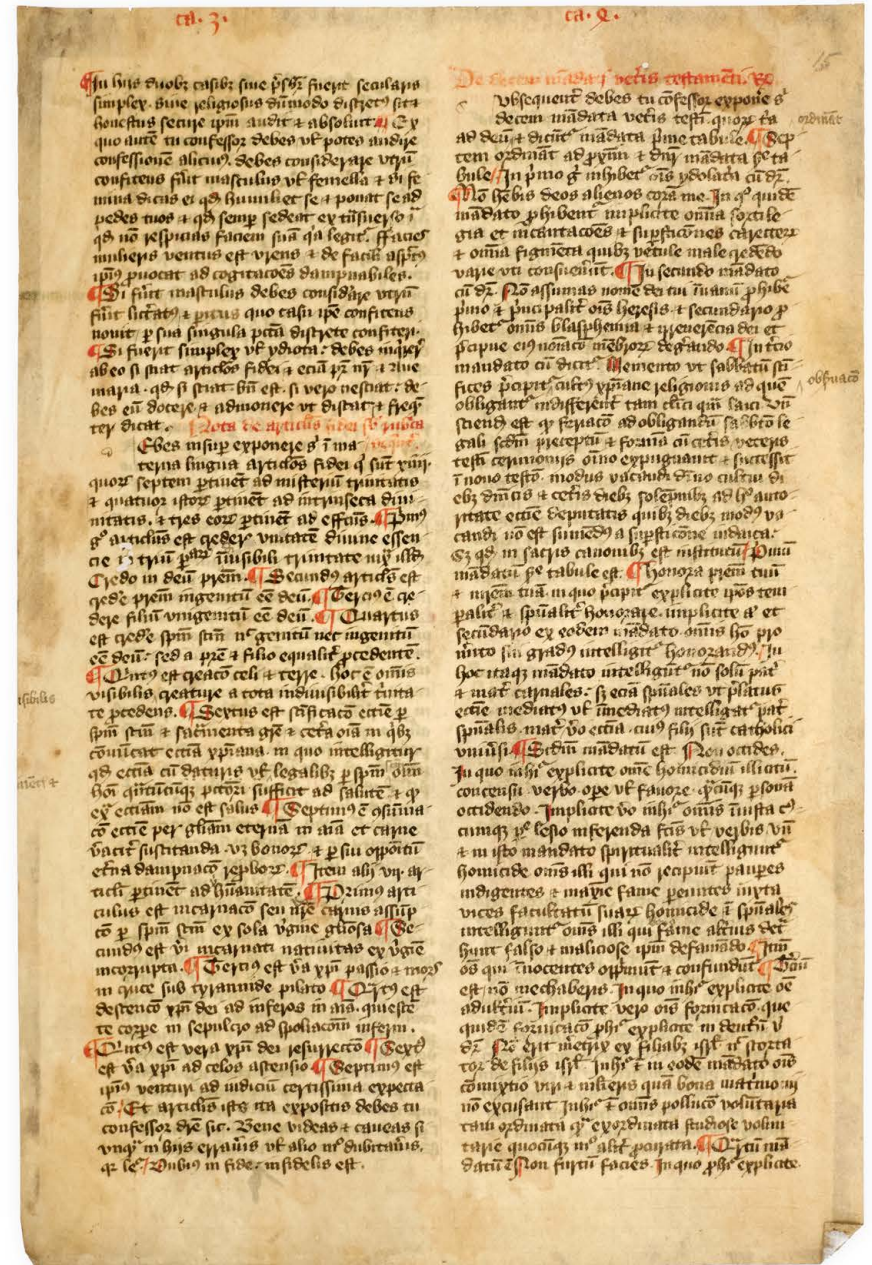 ca. 3.
ca. 4.
15
¶In hiis duobz casibz siue p̄sbr̄ fuerit secularis
simplex. siue religiosus dūmodo discretꝰ sit ⁊
honestus secure ip̄m audit ⁊ absoluit. Ex
quo autē tu confessor debes vl̓ potes audire
confessionē alicuiꝰ. debes considerare utrū
confitens sūit masculus vl̓ femella ⁊ si fe
mina dicas ei qd̓ humiliet se ⁊ ponat se ad
pedes tuos ⁊ qd̓ semꝑ sedeat ex trāsuerso ⁊
qd̓ nō respicias faciem suā qa legit̓. ffacies
mulieris ventus est vrens ⁊ de facili aspctꝰ
ip̄iꝰ ꝓuocat ad cogitacōes dampnabiles.
¶Si fūit masculus debes considāre utrū
fūit litt̓atꝰ ⁊ ꝑitus quo casu ip̄e confitens
nouit ꝑ sua singula pctā discrete confiteri.
¶Si fuerit simplex vl̓ ydiota. debes inq̓rer̓
ab eo si sciat articlōs fidei ⁊ eciā pr̄ nr̄ ⁊ aue
maria. qd̓ si sciat bn̄ est. si vero nesciat. de
bes eū docere ⁊ admonere ut discat ⁊ freq̄
ter dicat. Nota de articlis fidei
Ebes insuꝑ exponere s̓ ī ma
terna lingua articlōs fidei q̓ sūt xiiii.
quorꝫ septem ꝑtinēt ad misteriū trinitatis
⁊ quatuor istorꝫ ꝑtinēt ad intrinseca diui
nitatis. ⁊ tres eorꝫ ꝑtinent ad effcūs. ¶Pimꝰ
g̊ articlūs est creder̓ vnitatē diuine essen
cie in triū ꝑarꝫ īuisibili trinitate iux̓ illd̓
Credo in deū prēm. ¶Secundꝰ articlūs est
crede̓ prēm ingenitū eē deū. ¶Terciꝰ ē cre
dere filiū vnigenitū eē deū. ¶Quartus
est crede̓ spm̄ scm̄ nᵉ genitū nec ingenitū
eē deū. sed a prē ⁊ filio equalit̓ ꝓcedentē.
¶Quītꝰ est creacō celi ⁊ terre. hoc ē om̄is
visibilis creature a tota indiuisibili t̓nita
te ꝓcedens. ¶Sextus est sc̄ificacō ecc̄ie ꝑ
spm̄ scm̄ ⁊ sacramenta grē ⁊ cet̓a oīa in q̓bz
cōmūicat ecc̄ia xp̄iana. in quo intelligitur
qd̓ ecc̄ia cū daturis vl̓ legalibꝫ ꝑ spm̄ scm̄
hōi q̓ntūcūqꝫ pctōri sufficit ad salutē ⁊ qꝫ
ex̓ ecc̄iam nō est salus ¶Septimꝰ ē cōsūma
cō ecc̄ie per gl̄iam eternā in aīa et carne
v̓acit̓ suscitanda. vz bonorꝫ. ⁊ ꝑ suū oppōitū
et̓na dampnacō reꝓborꝫ. ¶Item alij vij ar
ticl̓i ꝑtinent ad hūanitatē. ¶Primus arti
culus est incarnacō seu v̓e carnis assūp
cō ꝑ spm̄ scm̄ ex sola v̓gine gl̄iosa ¶Se
cundꝰ est v̓i incarnati natiuitas ex v̓gīe
incorrupta. ¶Terciꝰ est v̓a xp̄i passio ⁊ mors
in cruce sub tyrannide pilato ¶Q̓rtꝰ est
descencō xp̄i dei ad inferos in aīa. quiescē
te corꝑe in sepulcro ad spoliacōm inferni.
¶Quītꝰ est vera xp̄i dei resurrectō ¶Sextꝰ
est v̓a xp̄i ad celos ascensio ¶Septimꝰ est
ip̄iꝰ venturi ad iudiciū certissima expecta
cō. Et articlīs istis ita expositis debes tu
confessor dr̄e sic. Bene videas ⁊ caueas si
vnq̓ in hiis erraūis vl̓ alio mō dubitaūis.
qr̄ le̓. Dubiꝰ in fide. infidelis est.
De decem mādatis vet̓is testamenti. Rō
vbsequent̓ debes tu cōfessor expone̓ s̓
decem mādata vet̓is testī. quorꝫ t̓a ordināt
ad deū ⁊ dicūt̓ mādata p̓me tabule. ¶Sep
tem ordināt ad ꝓximū ⁊ dr̄ mādata sc̄de ta
bule. In p̓mo g̊ inhibet̓ oīs ydolat̓a cū dr̄.
¶Nō hēbis deos alienos corā me. In q̓ quidē
mandato ꝓhibent̓ implicite om̄ia sortile
gia et incantacōes ⁊ suꝑsticōnes carecterꝫ
⁊ om̄ia figmēta quibꝫ vetule male credēdo
varie vti consueūūt. ¶In secundo mādato
cū dr̄. Nō assumas nomē dei tui īuanū ꝓhibet̓
p̓mo ⁊ p̓ncipalit̓ oīs heresis ⁊ secundario ꝓ
hibet̓ om̄is blasphemia ⁊ irreuerēcia dei et
p̓cipue eiꝰ noīacō mēbrorꝫ degrādo. ¶In t̓cio
mandato cū dicit̓. Memento ut sabbatū scī obseruacō
fices p̓cipit̓ cultꝰ xp̄iane religionis ad quē
obligant̓ indifferēt̓ tam cl̓ici qm̄ laici. Vn̄
sciend̓ est qꝫ feriacō ad obligandū sabbto le
gali scdm̄ preceptū ⁊ formā cū cet̓is veteris
testī cerimoniis oīno expugnant̓ ⁊ successit
ī nouo testō. modus vacandi diūo cultui di
ebꝫ dn̄icis ⁊ cet̓is diebꝫ solēpnibꝫ ad hᵒ auto
ritate ecc̄ie deputatis quibꝫ diebꝫ modꝰ va
candi nō est sumēdꝰ a suꝑsticōne iudaica.
Sꝫ qd̓ in sacris canonibꝫ est institutū. Primū
mādatū sc̄de tabule est. ¶Honora prēm tuū
⁊ mrēm tuā. in quo p̓cipit̓ explicite ip̄os tem
ꝑalit̓ ⁊ spūalit̓ honorare. implicite a̓ et
secūdario ex eodem mādato. om̄is hō pro
mīto sui gradꝰ intelligit̓ honorandꝰ. In
hoc itaqꝫ mādato intelligūt̓ nō solū pat̓
⁊ mat̓ carnales. sꝫ eciā spūales ut p̓latus
ecc̄ie mediatꝰ vl̓ īmediatꝰ intelligat̓ pat̓
spūalis. mat̓ v̊o ecc̄ia. cuiꝰ filij sūt catholici
vniūsi. ¶Scdm̄ mādatū est. Non occides.
In quo inhi̓ explicite om̄e homicidiū illicitū.
concensu verbo ope vl̓ fauore. q̓cūqꝫ ꝑsonā
occidendo. Implicite v̊o inhi̓ om̄is īiusta cꝰ
cumqꝫ ꝑs̓ lesio inferenda fcīs vl̓ verbis. vn̄
⁊ in isto mandato spiritualit̓ intelligūt̓
homicide om̄es illi qui nō recipiūt pauꝑes
indigentes ⁊ maxīe fame ꝑeuntes iuxta
vires facultatū suarꝫ homicide ī spūales
intelligūt̓ om̄es illi qui fame alt̓ius det̓
hunt falso ⁊ maliciose ip̄m defamādo ¶Itm̄
oēs qui īnocentes opp̓mūt ⁊ confundūt. ¶Terciū
est. nō mechaberis. In quo inhi̓ explicite oē
adult̓iū. Implicite vero oīs fornicacō. que
quidē fornicacō ꝓhi̓ explicite in deutrō. u̓
dr̄. Nō erit met̓rix ex filiabꝫ isrl̓. nᵉ scorta
tor de filijs isrl̓. Inhi̓ ⁊ in eodē mādato oīs
cōmixtio viri ⁊ mlieris quā bona matrimonij
nō excusant. Inhi̓ ⁊ om̄is polluco voluntaria
tam ordinata qm̄ exordinata studiose volun
tarie quocūqꝫ mō alit̓ ꝓcurata. ¶Q̓rtū mā
datū ē. Non furtū facies. In quo ꝓhi̓ explicite